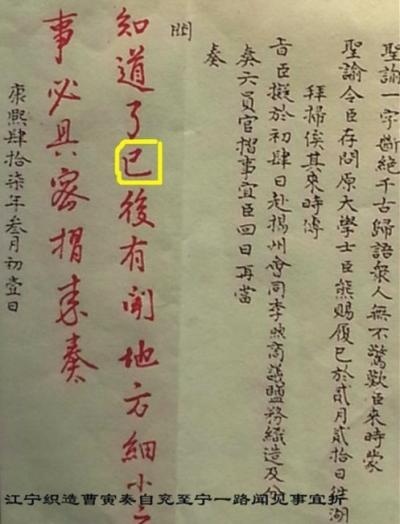 聖諭一字斷絕千古歸語眾人無不驚歎臣來時蒙
聖諭令臣存問原大學士臣熊賜履已於貳月貳拾日往湖
拜掃俟其來時傳
旨臣擬於初肆日赴揚州會同李煦商議鹽務織造及
奏六員官摺事宜臣回日再當
奏
知道了已後有聞地方細小
事必具密摺來奏
康熙肆拾柒年叁月初壹日
江宁织造曹寅奏自兖至宁一路闻见事宜折